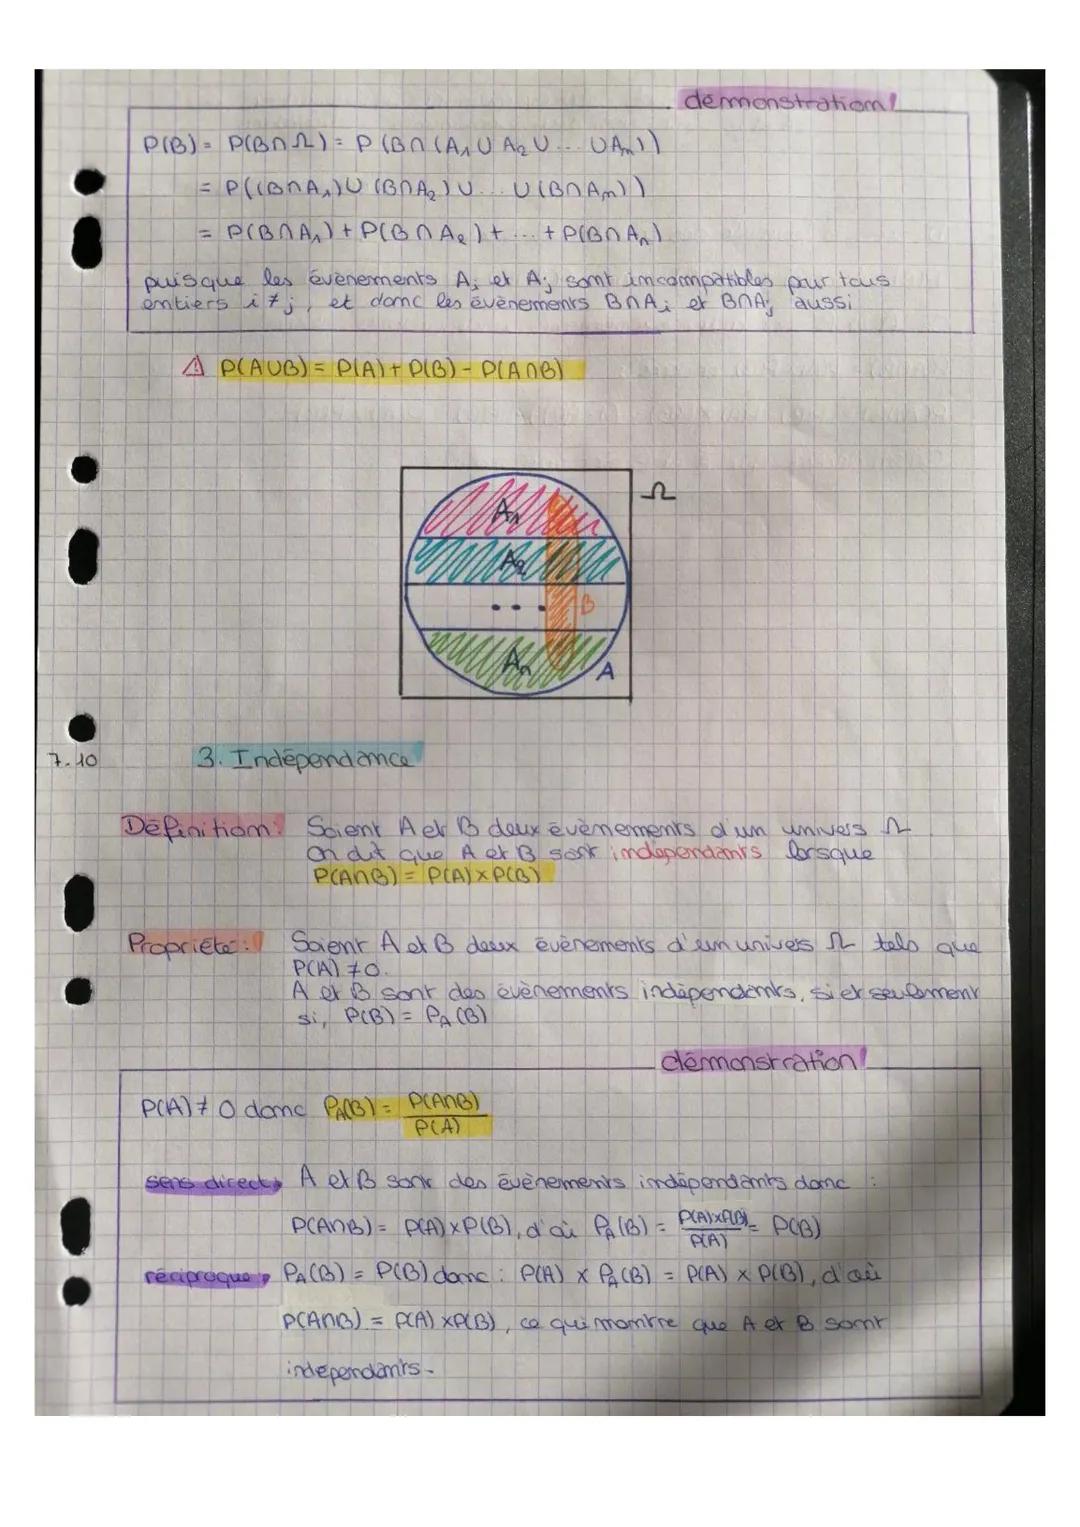 démonstration!
P(B) = P(B∩Ω) = P(B∩(A₁ U A₂ U ... U Aₙ))
= P((B∩A₁) U (B∩A₂) U ... U (B∩Aₙ))
= P(B∩A₁) + P(B∩A₂) + ... + P(B∩Aₙ)
puisque les évènements Aᵢ et Aⱼ sont incompatibles pour tous
entiers i ≠ j, et donc les évènements B∩Aᵢ et B∩Aⱼ aussi
⚠ P(AUB) = P(A) + P(B) - P(A∩B)
Ω
A₁
A₂
... B
Aₙ A
7.10 3. Indépendance
Définition: Soient A et B deux évènements d'un univers Ω
On dit que A et B sont indépendants lorsque
P(A∩B) = P(A) x P(B)
Propriété: Soient A et B deux évènements d'un univers Ω tels que
P(A) ≠ 0.
A et B sont des évènements indépendants, si et seulement
si, P(B) = P_A(B)
démonstration!
P(A) ≠ 0 donc P_A(B) = P(A∩B)/P(A)
sens direct → A et B sont des évènements indépendants donc :
P(A∩B) = P(A) x P(B), d'où P_A(B) = P(A)xP(B)/P(A) = P(B)
réciproque → P_A(B) = P(B) donc : P(A) x P_A(B) = P(A) x P(B), d'où
P(A∩B) = P(A) x P(B), ce qui montre que A et B sont
indépendants.